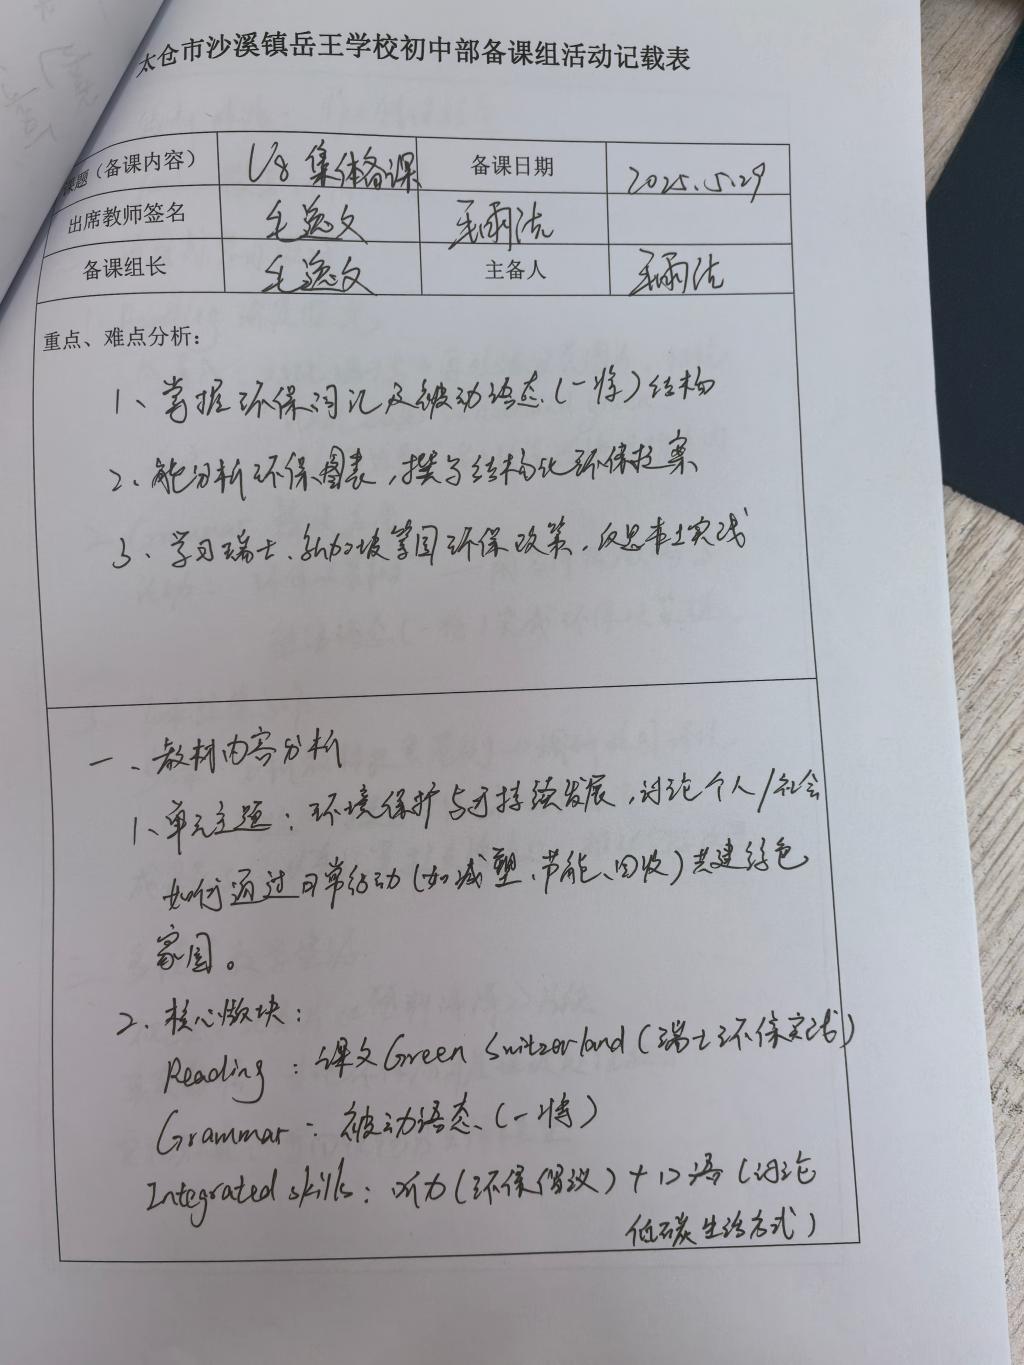 太仓市沙溪镇岳王学校初中部备课组活动记载表
课题（备课内容） U8 集体备课 备课日期 2025.5.29
出席教师签名 毛逸文 王雨洁
备课组长 毛逸文 主备人 王雨洁
重点、难点分析：
1、掌握环保词汇及被动语态（一将）结构
2、能分析环保图表，撰写结构化环保提案
3、学习瑞士、新加坡等国环保政策，反思本土实践
一、教材内容分析
1、单元主题：环境保护与可持续发展，讨论个人/社会
如何通过日常行动（如减塑、节能、回收）共建绿色
家园。
2、核心版块：
Reading：课文Green Switzerland（瑞士环保实践）
Grammar：被动语态（一将）
Integrated skills：听力（环保倡议）+口语（讨论
低碳生活方式）